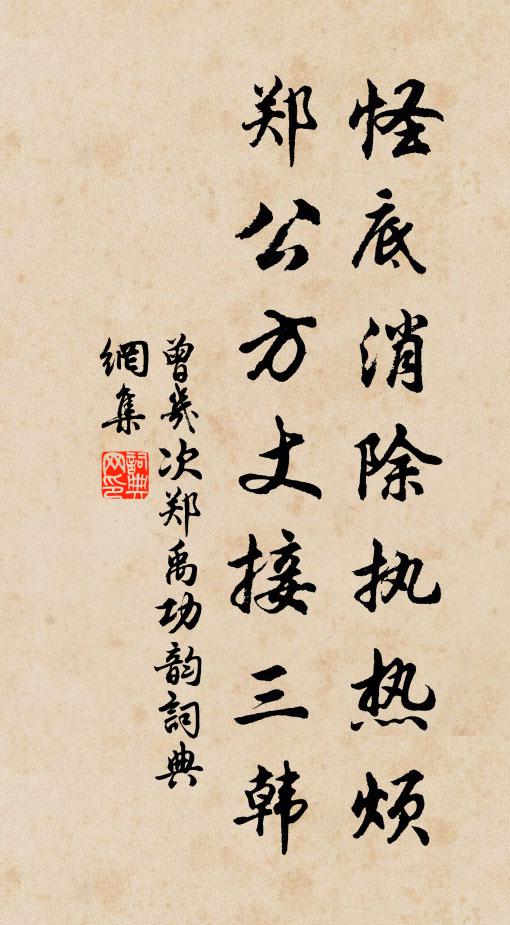 怪底消除执热烦
郑公方丈接三韩
曾幾次郑禹功韵詞典
網集
詞典网印